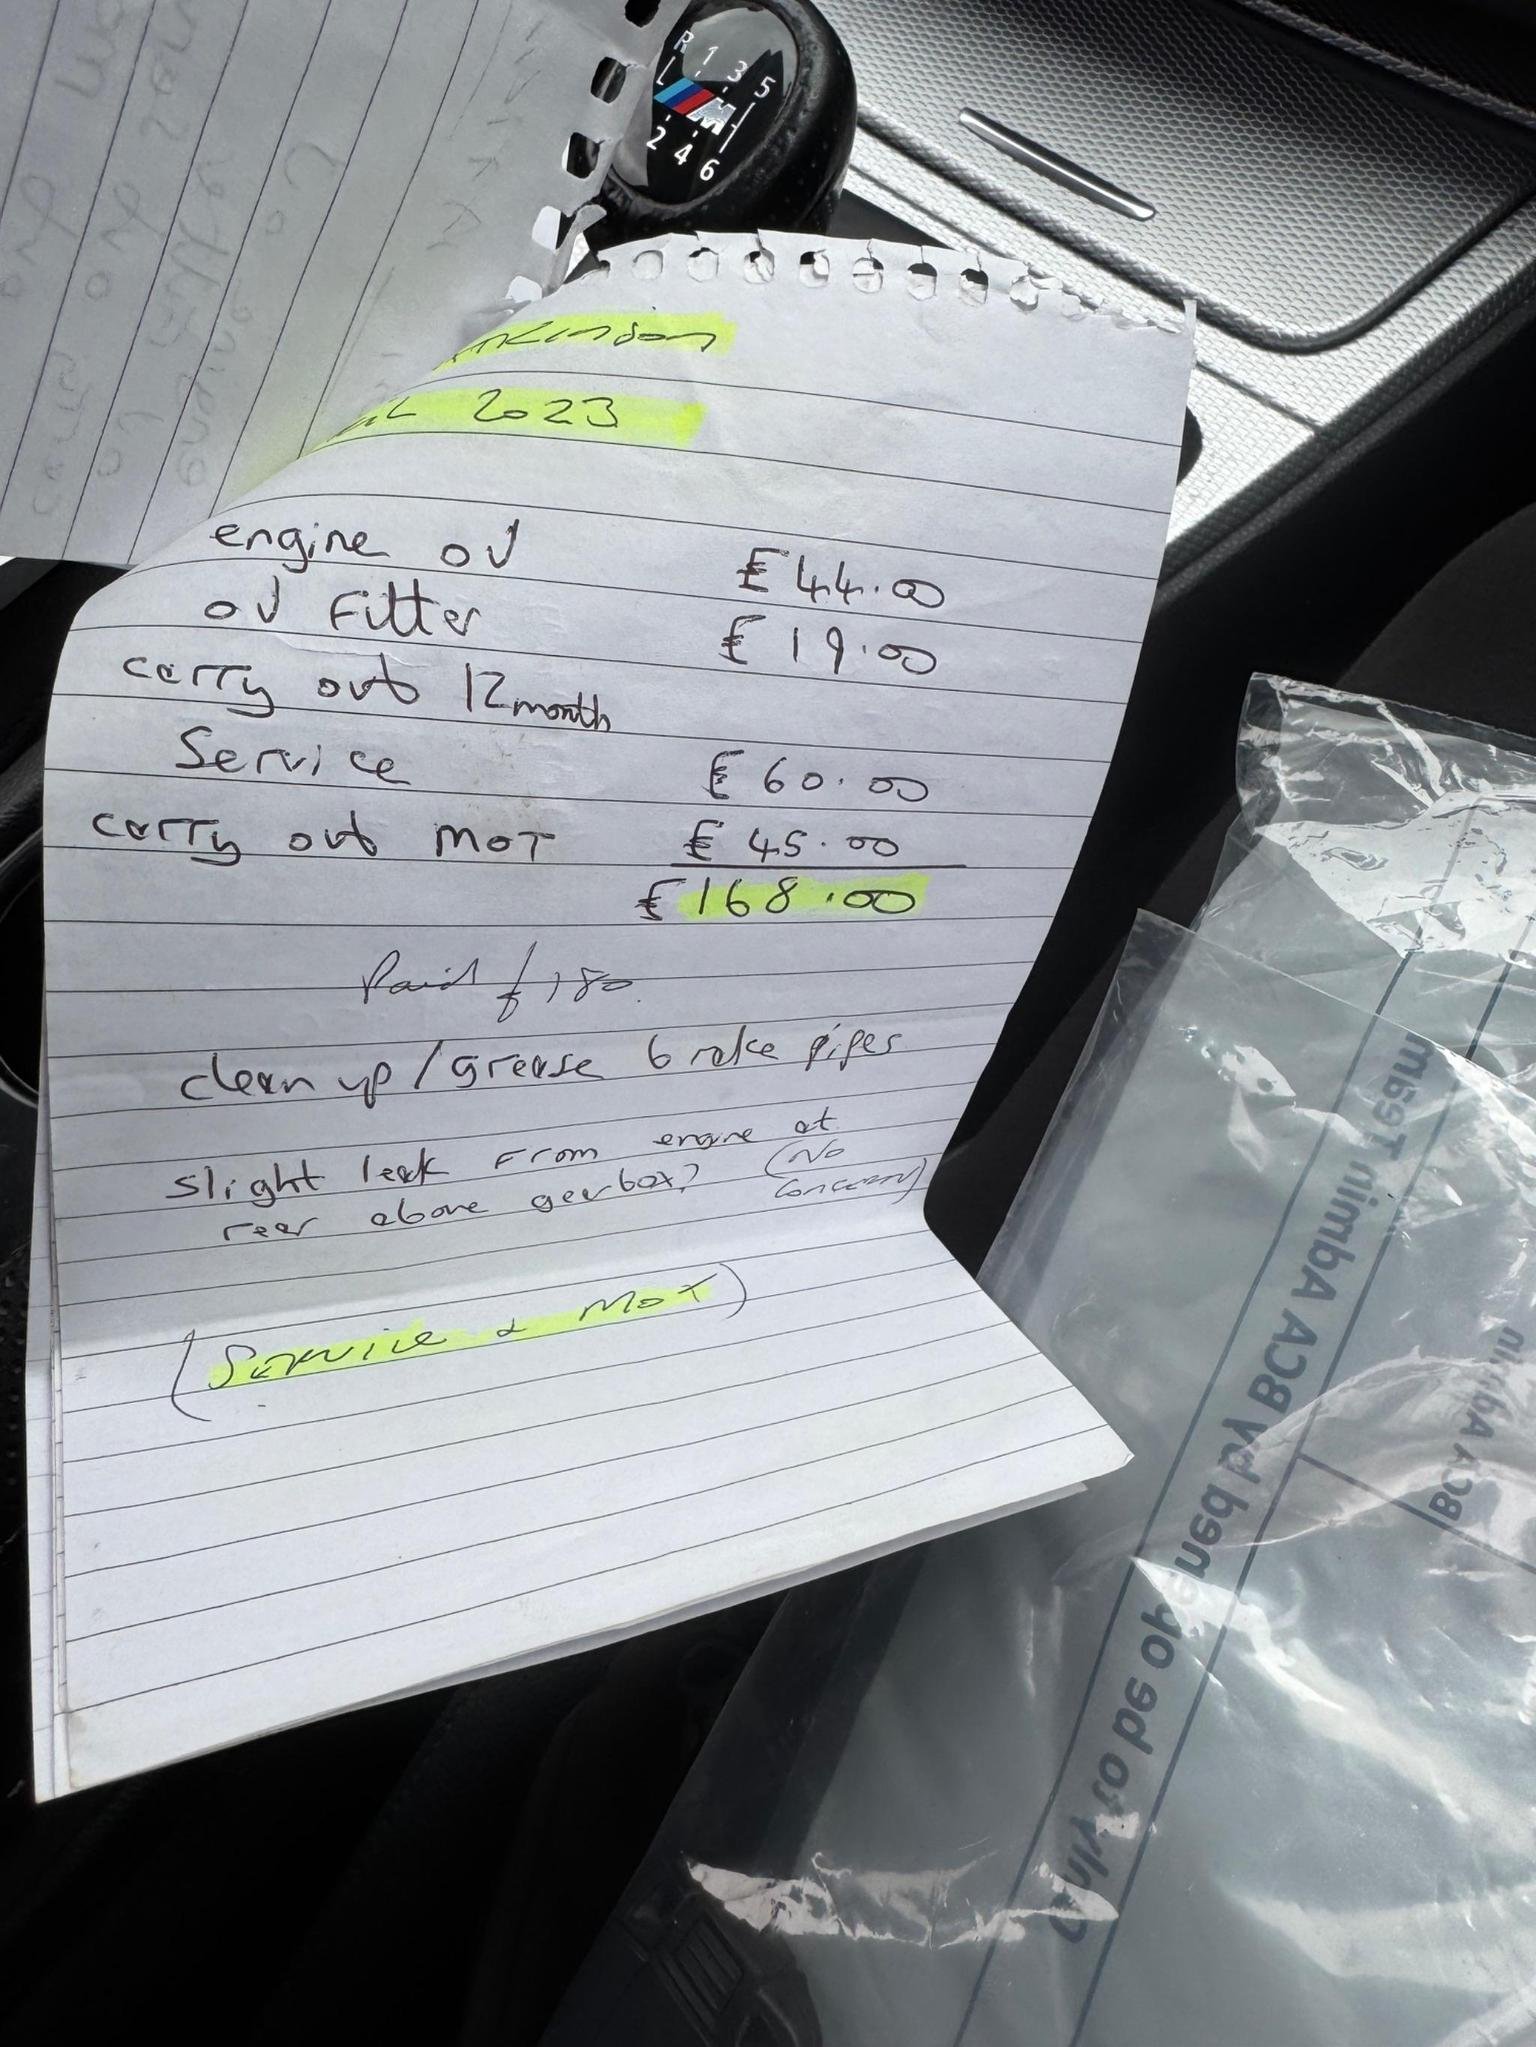 R 1 3 5
L M
2 4 6
2023
engine oil £44.00
oil Filter £19.00
carry out 12 month
Service £60.00
carry out MOT £45.00
£168.00
Paid £180.
clean up/grease brake pipes
slight leak From engine at
rear above gearbox? (No
concern)
(Service & MOT)
Only to be opened by BCA Admin Team
BCA Admin